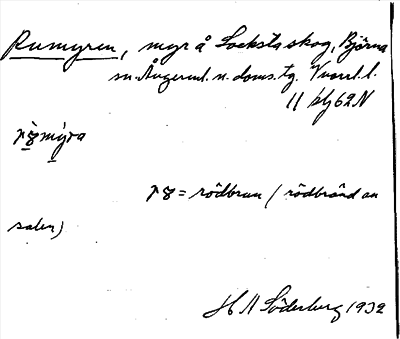 Rumyren, myr å Locksta skog, Björna
sn. Ångerml. n. doms. tg. Kvarrl. l.
11 blj 62 N
myra
= rödbrun (rödbränd an
salen)
H A Söderberg 1932